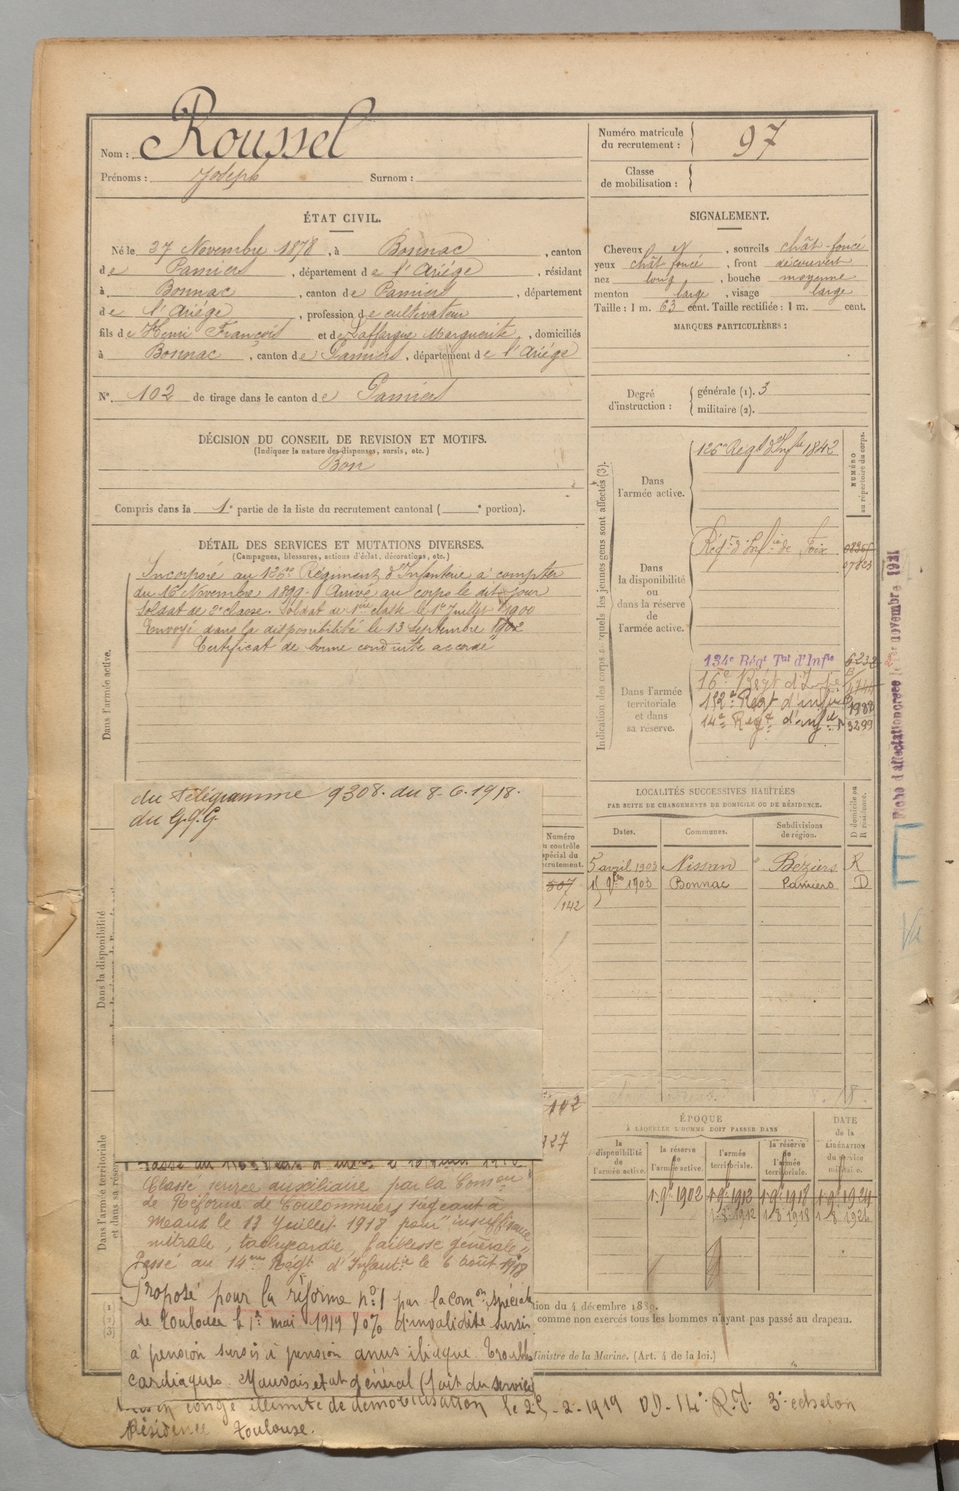 Nom : Roussel
Prénoms : Joseph Surnom :
Numéro matricule du recrutement : 97
Classe de mobilisation :
ÉTAT CIVIL.
Né le 27 Novembre 1878, à Bonnac, canton
de Pamiers, département de l'Ariége, résidant
à Bonnac, canton de Pamiers, département
de l'Ariége, profession de cultivateur
fils de Henri François et de Laffargue Marguerite, domiciliés
à Bonnac, canton de Pamiers, département de l'Ariége
N° 102 de tirage dans le canton de Pamiers
DÉCISION DU CONSEIL DE REVISION ET MOTIFS.
(Indiquer la nature des dispenses, sursis, etc.)
Bon
Compris dans la 1e partie de la liste du recrutement cantonal ( e portion).
DÉTAIL DES SERVICES ET MUTATIONS DIVERSES.
(Campagnes, blessures, actions d'éclat, décorations, etc.)
Dans l'armée active.
Incorporé au 126me Régiment d'Infanterie à compter
du 16 Novembre 1899. Arrivé au corps le dit jour
Soldat de 2e classe. Soldat de 1re classe le 1er Juillet 1900
Envoyé dans la disponibilité le 13 Septembre 1902
Certificat de bonne conduite accordé
du Télégramme 9308. du 8-6.1918.
du G.Q.G
Dans la disponibilité
Dans l'armée territoriale
et dans sa réserve
Classé service auxiliaire par la Comon
de Réforme de Coulommiers siégeant à
Meaux le 13 Juillet 1918 pour "insuffisance
mitrale, tachycardie, faiblesse générale"
Passé au 14me Régt d'Infantie le 6 août 1918
Proposé pour la réforme n° 1 par la Comon spéciale
de Toulouse le 1er mai 1919 80% d'invalidité
à pension
cardiaques. Mauvais etat général (fait du service)
congé illimité de démobilisation le 25-2-1919 DD. 14e R.I. 3e echelon
Résidence Toulouse.
SIGNALEMENT.
Cheveux N, sourcils chât-foncé
yeux chât foncé, front découvert
nez long, bouche moyenne
menton large, visage large
Taille : 1 m. 63 cent. Taille rectifiée : 1 m. cent.
MARQUES PARTICULIÈRES :
Degré d'instruction : générale (1). 3
militaire (2).
Indication des corps auxquels les jeunes gens sont affectés (3).
NUMÉRO au répertoire du corps.
Dans l'armée active.
126e Régt d'Infie 1842
Dans la disponibilité ou dans la réserve de l'armée active.
Régt d'Infie de Foix
Dans l'armée territoriale et dans sa réserve.
134e Régt Tal d'Infie 6232
16e Régt d'Infie
14e Régt d'infie 3299
novembre 1921
LOCALITÉS SUCCESSIVES HABITÉES
PAR SUITE DE CHANGEMENTS DE DOMICILE OU DE RÉSIDENCE.
Dates. Communes. Subdivisions de région. D domicile ou R résidence.
5 avril 1903 Nissan Béziers R
1903 Bonnac Pamiers D
Numéro
au contrôle
spécial du
recrutement.
807
142
102
327
ÉPOQUE
À LAQUELLE L'HOMME DOIT PASSER DANS
la disponibilité de l'armée active.
la réserve de l'armée active.
l'armée territoriale.
la réserve de l'armée territoriale.
DATE de la LIBÉRATION du service militaire.
1.9bre 1902 1.9bre 1912 1.9bre 1918 1.9bre 1924
1-8-1912 1-8-1918 1-8-1924
tion du 4 décembre 1889.
comme non exercés tous les hommes n'ayant pas passé au drapeau.
Ministre de la Marine. (Art. 4 de la loi.)